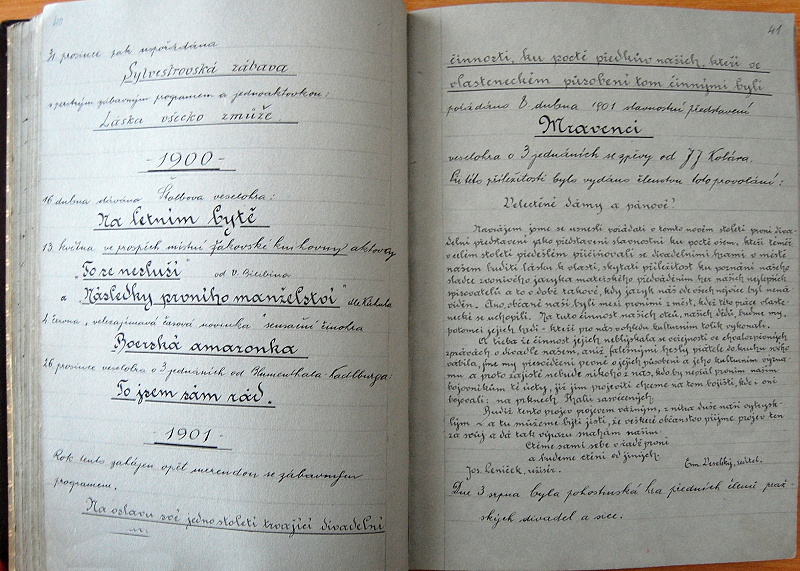 40
31 prosince pak uspořádána
Sylvestrovská zábava
s pestrým zábavným programem a jednoaktovkou:
Láska všecko zmůže.
- 1900 -
16 dubna dávána Štolbova veselohra:
Na letním bytě
13. května ve prospěch místní žákovské knihovny aktovky
"To se nesluší" od V. Bieblna
a "Následky prvního manželství" dle Kakula
4 června, "velezajímavá časová novinka" sensační činohra
Boerská amazonka
26 prosince veselohra o 3 jednáních od Blumenthala-Kadlburga:
To jsem sám rád.
- 1901 -
Rok tento zahájen opět merendou se zábavným
programem.
Na oslavu své jedno století trvající divadelní
41
činnosti, ku poctě předkův našich, kteří ve
vlasteneckém působení tom činnými byli
pořádáno 8 dubna 1901 slavnostní představení
Mravenci
veselohra o 3 jednáních se zpěvy od J J Kolára.
Při této příležitosti bylo vydáno členstvu toto provolání:
Velectěné dámy a pánové!
Navázajíce jsme se usnesli pořádati v tomto novém století první diva-
delní představení jako představení slavnostní ku poctě všem, kteří téměř
v celém století předešlém přičiňovali se divadelními hrami v městě
našem buditi lásku k vlasti, skytati příležitost ku poznání našeho
sladce zvonivého jazyka mateřského předváděním her našich nejlepších
spisovatelů a to v době takové, kdy jazyk náš ode všech nejvíce byl nená-
viděn. Ano, občané naši byli mezi prvními z měst, kde této práce vlaste-
necké se uchopili. Na tuto činnost našich otců, našich dědů, buďme my,
potomci jejich hrdi - kteří pro nás v ohledu kulturním tolik vykonali.
Ač třeba že činnost jejich neblýskala se veřejností ve chvalozpěvných
zprávách o divadle našem, aniž falešnými hesly přátele do kruhu svého
vábila, jsme my přesvědčeni pevně o jejich působení a jeho kulturním význa-
mu a proto zajisté nebude nikoho z nás, kdo by nepřál prvním našim
bojovníkům té úcty, již jim projeviti chceme na tom bojišti, kde i oni
bojovali: na prknech Thalii zasvěcených.
Budiž tento projev projevem vážným, z nitra duše naší vytrysk-
lým - a tu můžeme býti jisti, že veškeré občanstvo přijme projev ten
za svůj a dá tak výrazu snahám našim.
Ctěme sami sebe v řadě první
a budeme ctěni od jiných.
Jos. Leníček, režisér. Em. Veselský, ředitel.
Dne 3 srpna byla pohostinská hra předních členů praž-
ských divadel a sice.